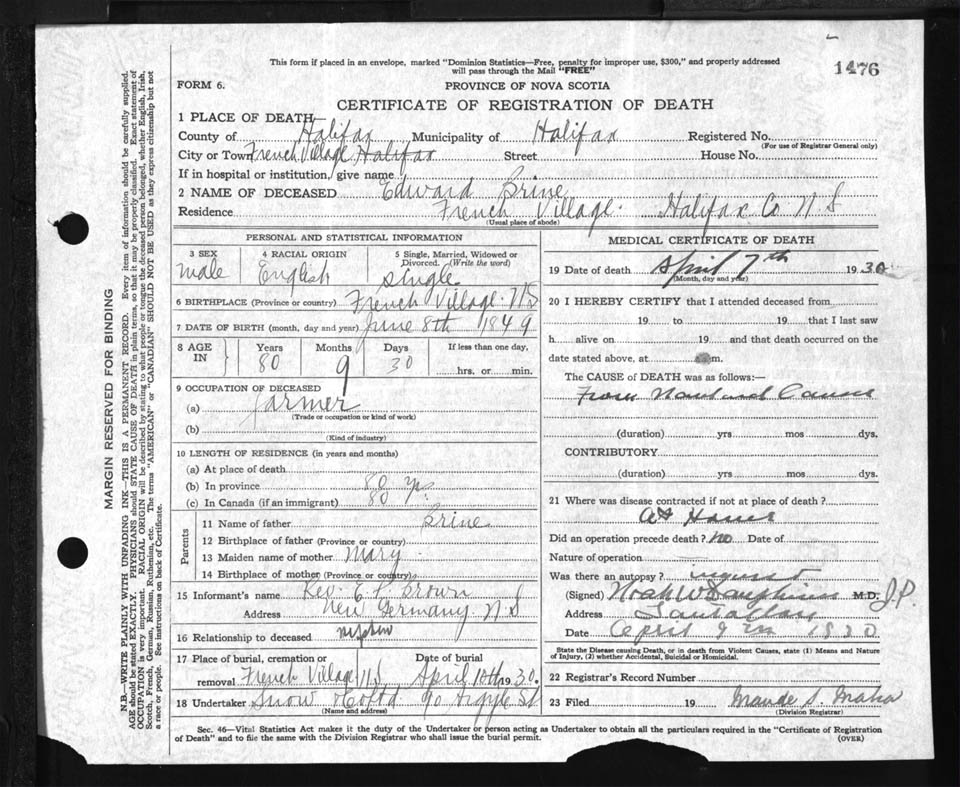 This form if placed in an envelope, marked "Dominion Statistics—Free, penalty for improper use, $300," and properly addressed
will pass through the Mail "FREE"
1476
FORM 6.
PROVINCE OF NOVA SCOTIA
CERTIFICATE OF REGISTRATION OF DEATH
1 PLACE OF DEATH
County of Halifax Municipality of Halifax Registered No.
(For use of Registrar General only)
City or Town French Village Halifax Street House No.
If in hospital or institution, give name
2 NAME OF DECEASED Edward Brine
Residence French Village. Halifax Co N S
(Usual place of abode)
PERSONAL AND STATISTICAL INFORMATION
3 SEX
male
4 RACIAL ORIGIN
English
5 Single, Married, Widowed or
Divorced. (Write the word)
single
6 BIRTHPLACE (Province or country) French Village. NS
7 DATE OF BIRTH (month, day and year) June 8th 1849
8 AGE IN
Years Months Days If less than one day,
80 9 30 hrs. or min.
9 OCCUPATION OF DECEASED
(a) Farmer
(Trade or occupation or kind of work)
(b)
(Kind of industry)
10 LENGTH OF RESIDENCE (in years and months)
(a) At place of death
(b) In province 80 yrs
(c) In Canada (if an immigrant) 80
Parents
11 Name of father Brine
12 Birthplace of father (Province or country)
13 Maiden name of mother Mary
14 Birthplace of mother (Province or country)
15 Informant's name Rev. E. P. Brown
Address New Germany N S
16 Relationship to deceased nephew
17 Place of burial, cremation or Date of burial
removal French Village N S. April 10th 1930.
18 Undertaker Snow & Co Ltd 90 Argyle St
(Name and address)
MEDICAL CERTIFICATE OF DEATH
19 Date of death April 7th 1930
(Month, day and year)
20 I HEREBY CERTIFY that I attended deceased from
19 to 19 that I last saw
h alive on 19 and that death occurred on the
date stated above, at m.
The CAUSE of DEATH was as follows:—
From Natural Causes
(duration) yrs mos dys.
CONTRIBUTORY
(duration) yrs mos dys.
21 Where was disease contracted if not at place of death?
At Home
Did an operation precede death? no Date of
Nature of operation
Was there an autopsy?
(Signed) Noah W M.D. J.P
Address
Date April 9th 1930
State the Disease causing Death, or in death from Violent Causes, state (1) Means and Nature
of Injury, (2) whether Accidental, Suicidal or Homicidal.
22 Registrar's Record Number
23 Filed 19 Maude S.
(Division Registrar)
Sec. 46—Vital Statistics Act makes it the duty of the Undertaker or person acting as Undertaker to obtain all the particulars required in the "Certificate of Registration
of Death" and to file the same with the Division Registrar who shall issue the burial permit.
(OVER)
MARGIN RESERVED FOR BINDING
N.B.—WRITE PLAINLY WITH UNFADING INK—THIS IS A PERMANENT RECORD. Every item of information should be carefully supplied.
AGE should be stated EXACTLY. PHYSICIANS should STATE CAUSE OF DEATH in plain terms, so that it may be properly classified. Exact statement of
OCCUPATION is very important. RACIAL ORIGIN will be described by stating to what people or tongue the deceased person belonged, whether English, Irish,
Scotch, French, German, Russian, Ruthenian, etc. The terms "AMERICAN" or "CANADIAN" SHOULD NOT BE USED as they express citizenship but not
a race or people. See instructions on back of Certificate.